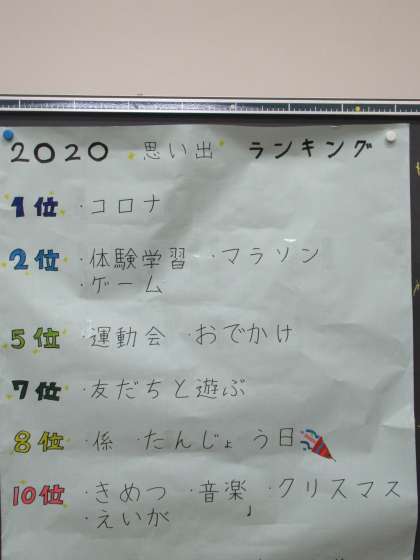 2020 思い出 ランキング
1位 ・コロナ
2位 ・体験学習 ・マラソン
・ゲーム
5位 ・運動会 ・おでかけ
7位 ・友だちと遊ぶ
8位 ・係 ・たんじょう日
10位 ・きめつ ・音楽 ・クリスマス
・えいが